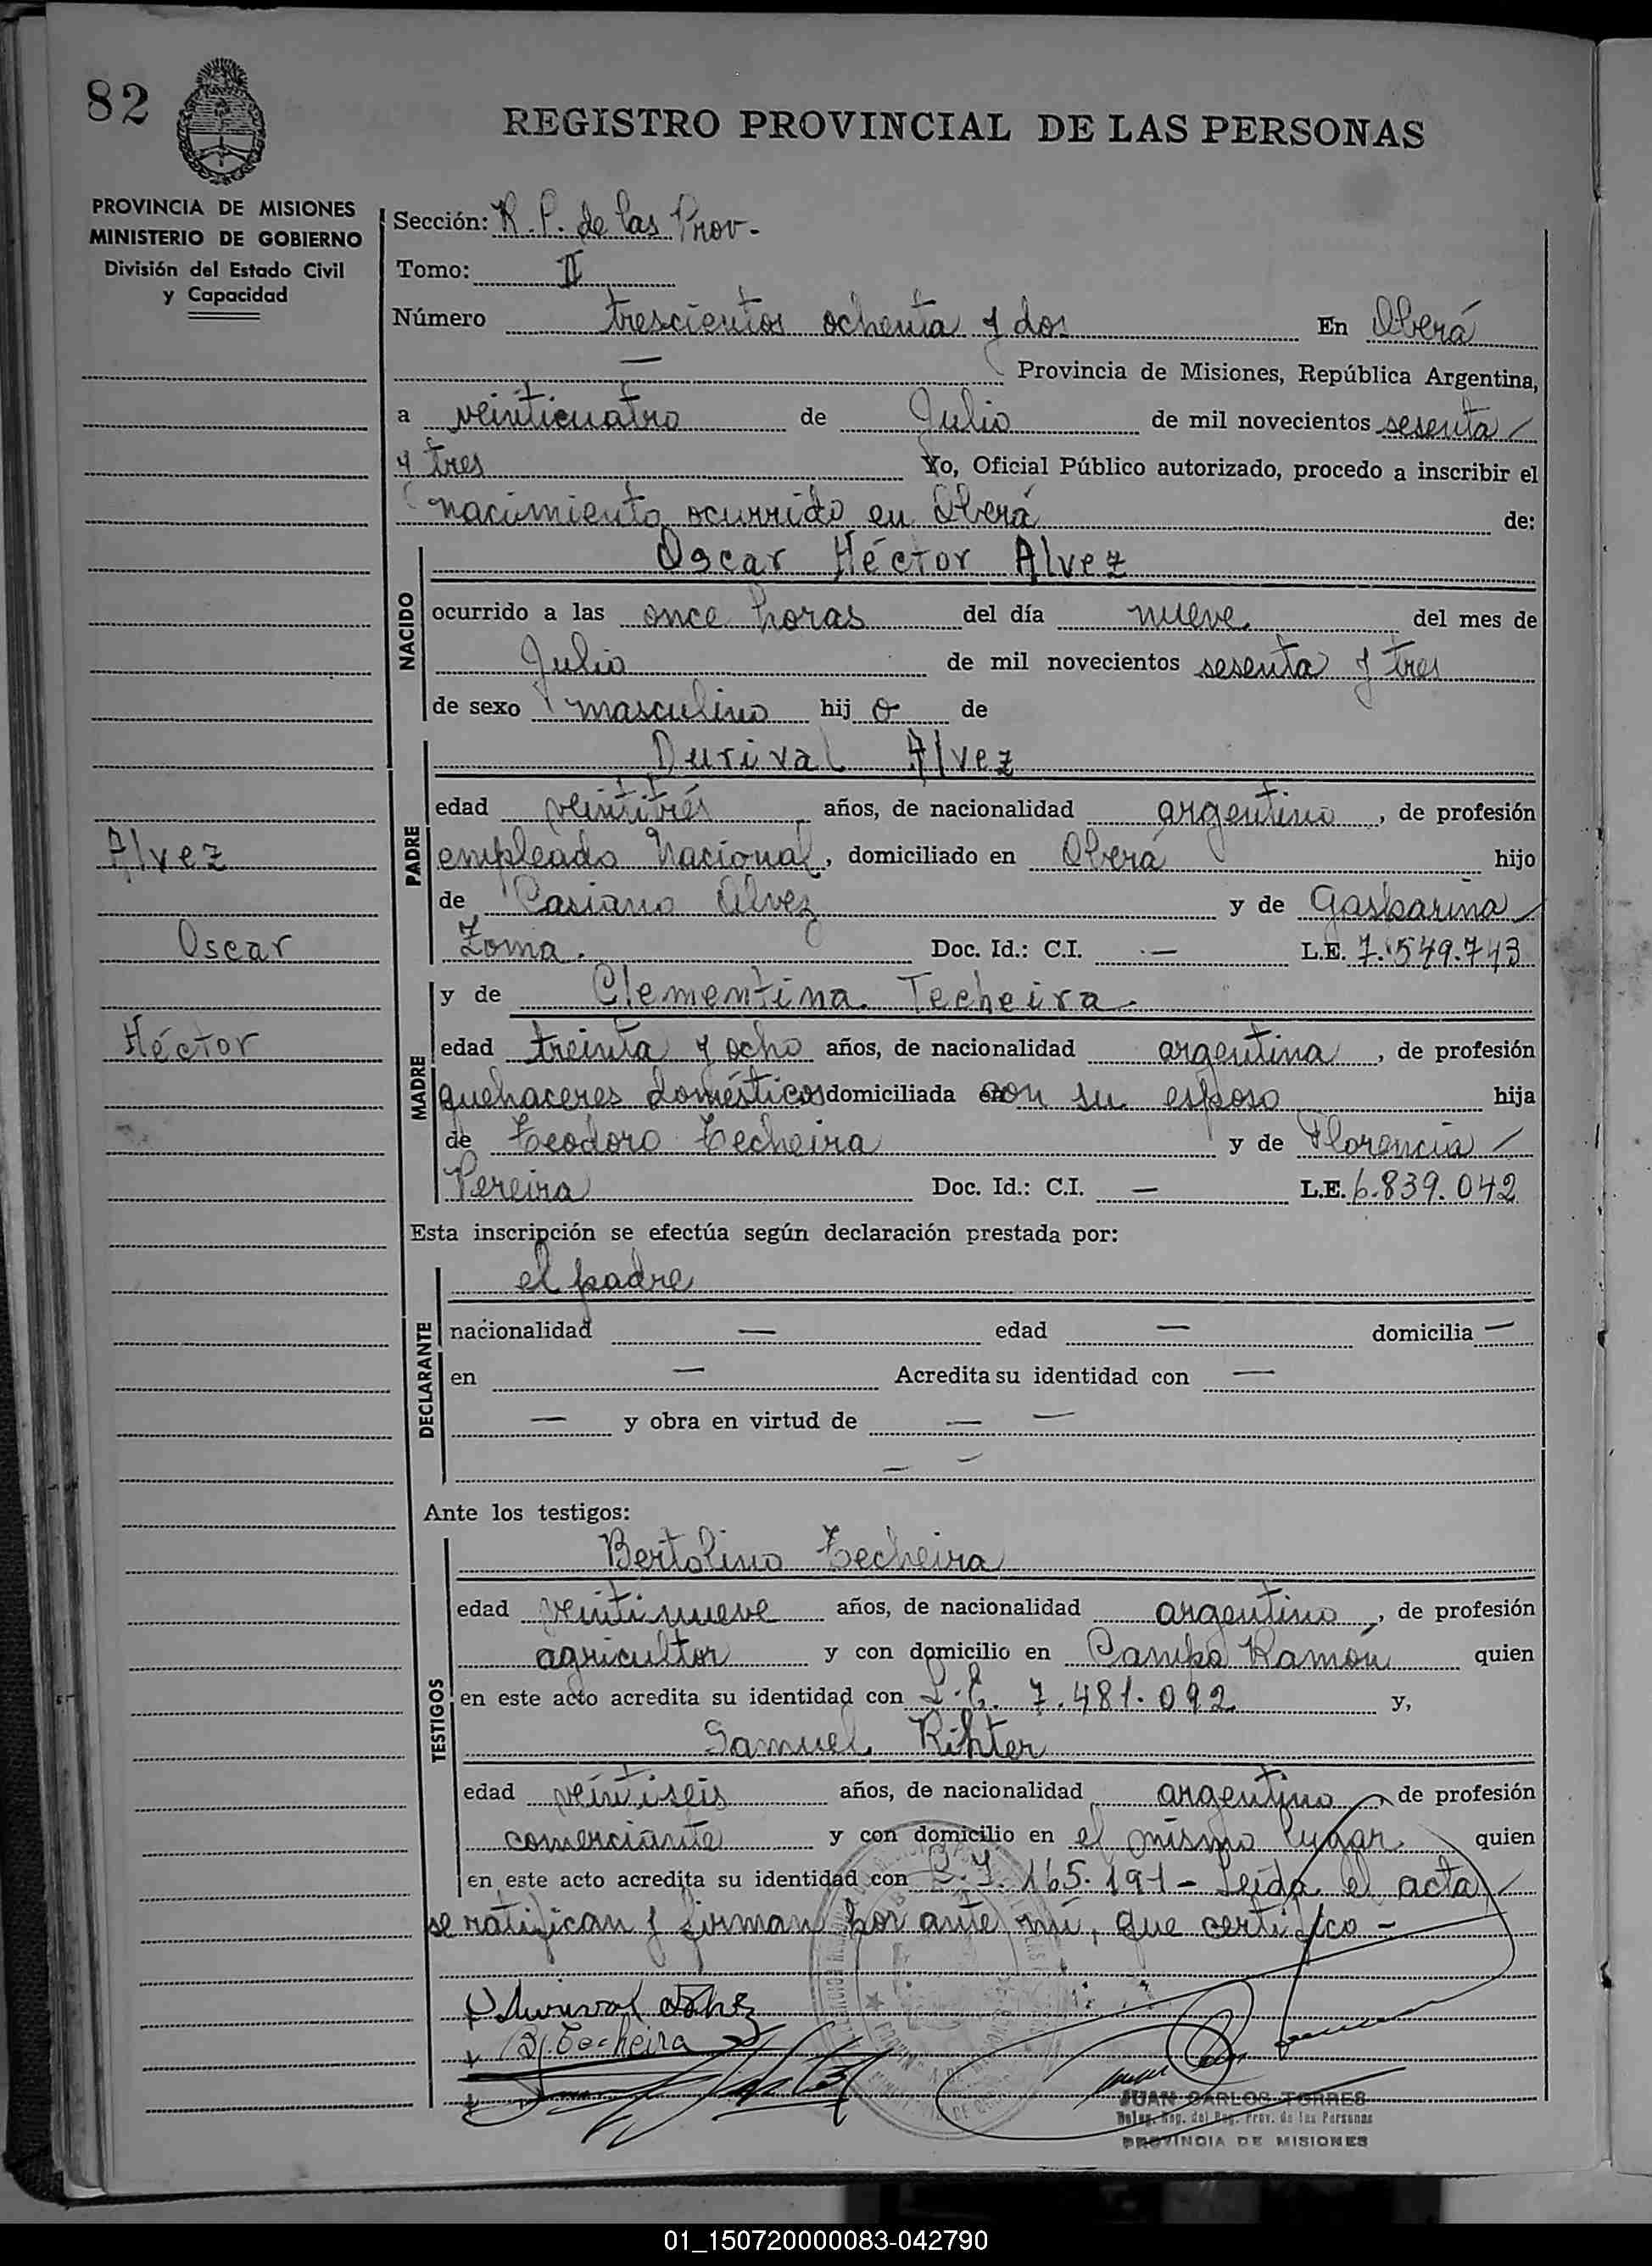 82
REGISTRO PROVINCIAL DE LAS PERSONAS
PROVINCIA DE MISIONES
MINISTERIO DE GOBIERNO
División del Estado Civil
y Capacidad
Sección: R. P. de las Prov.
Tomo: II
Número trescientos ochenta y dos En Oberá
— Provincia de Misiones, República Argentina,
a veinticuatro de Julio de mil novecientos sesenta
y tres Yo, Oficial Público autorizado, procedo a inscribir el
nacimiento ocurrido en Oberá de:
NACIDO
Oscar Héctor Alvez
ocurrido a las once horas del día nueve del mes de
Julio de mil novecientos sesenta y tres
de sexo masculino hij o de
PADRE
Durival Alvez
edad veintitrés años, de nacionalidad argentino, de profesión
empleado Nacional, domiciliado en Oberá hijo
de Casiano Alvez y de Gasparina
Zoma. Doc. Id.: C.I. — L.E. 7.549.743
Alvez
Oscar
Héctor
MADRE
y de Clementina Techeira
edad treinta y ocho años, de nacionalidad argentina, de profesión
quehaceres domésticos domiciliada con su esposo hija
de Teodoro Techeira y de Florencia
Pereira Doc. Id.: C.I. — L.E. 6.839.042
Esta inscripción se efectúa según declaración prestada por:
DECLARANTE
el padre
nacionalidad — edad — domicilia —
en — Acredita su identidad con —
— y obra en virtud de — —
— —
Ante los testigos:
TESTIGOS
Bertolino Techeira
edad veintinueve años, de nacionalidad argentino, de profesión
agricultor y con domicilio en Campo Ramón quien
en este acto acredita su identidad con L.E. 7.481.092 y,
Samuel Rihter
edad veintiseis años, de nacionalidad argentino de profesión
comerciante y con domicilio en el mismo lugar quien
en este acto acredita su identidad con C.I. 165.191 - Leída el acta
se ratifican y firman por ante mí, que certifico -
Durival Alvez
B. Techeira
JUAN CARLOS TORRES
Deleg. Rep. del Reg. Prov. de las Personas
PROVINCIA DE MISIONES
01_150720000083-042790